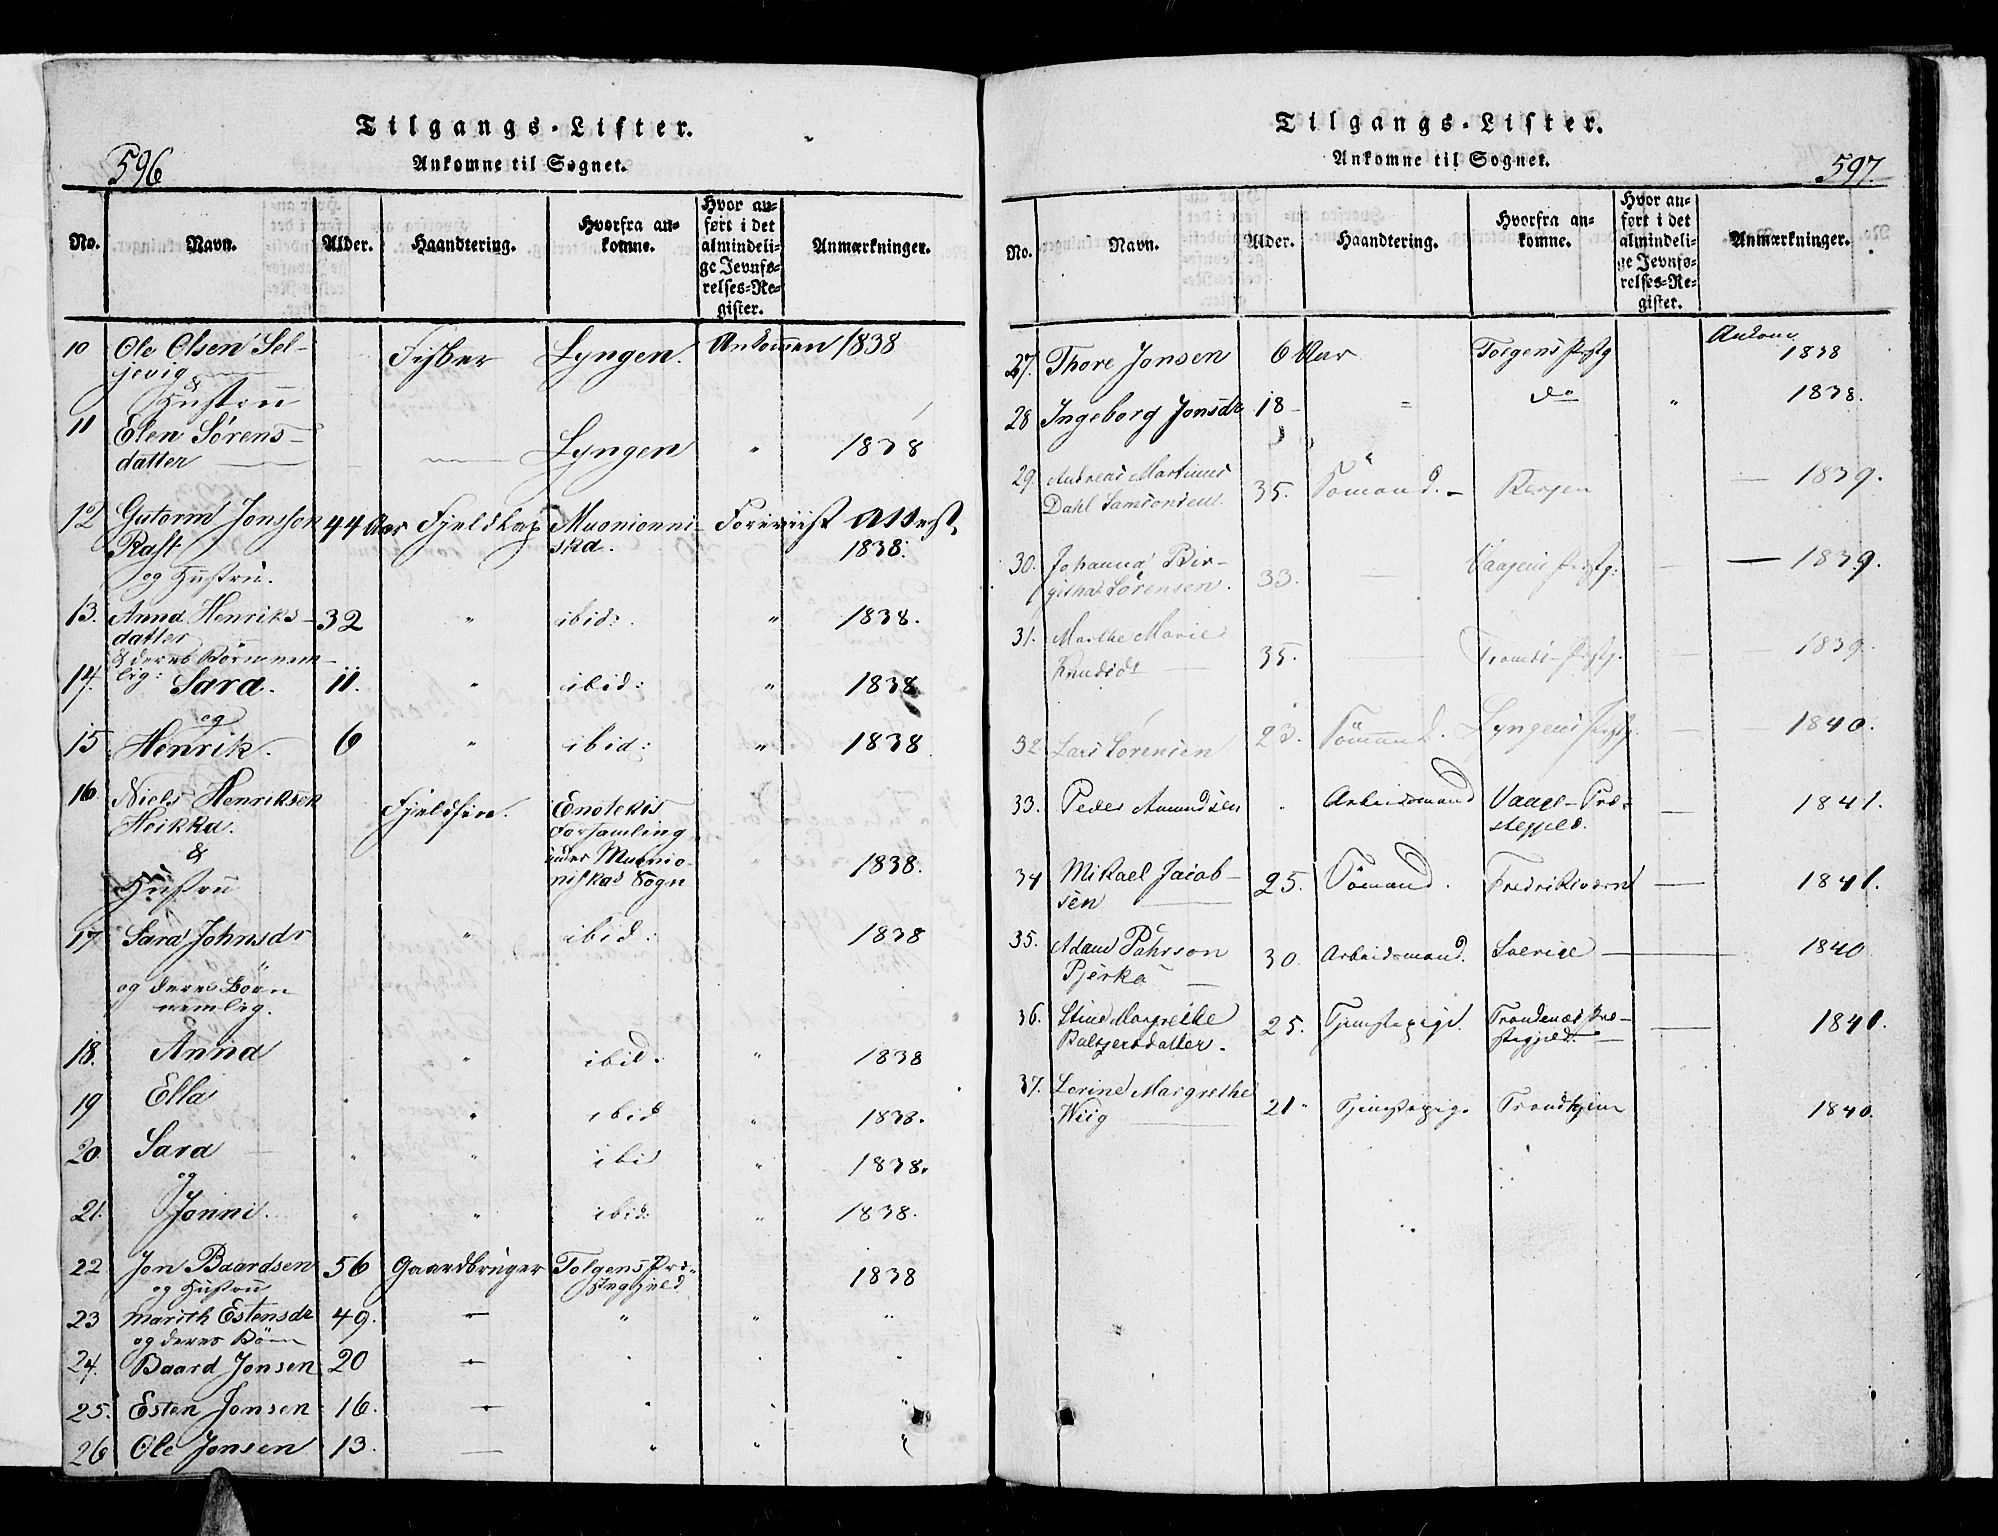 Tilgangs-Lister.
596
Ankomne til Sognet.
No. Navn. Alder. Haandtering. Hvorfra ankomne. Hvor anført i det almindelige Jevnførelses-Register. Anmærkninger.
10 Ole Olsen Sel- Fisker Lyngen. Ankommen 1838
jevig
& Hustru
11 Elen Sørens- Lyngen " 1838
datter
12 Gutorm Jonsson 44 Aar Fjeldlap Muonionni- Foreviist Attest
Raft ska. 1838.
og Hustru.
13. Anna Henriks- 32 " ibid: " 1838.
datter
& deres Børn nem-
14. lig: Sara. 11. " ibid: " 1838
og
15 Henrik. 6 " ibid: " 1838
16 Niels Henriksen Fjeldfin. Enotekis
Heikka. Forsamling
& under Muonio- " 1838.
Hustru niskas Sogn
17 Sara Johnsdr " ibid: 1838
og deres Börn
nemlig.
18. Anna " ibid. " 1838
19 Ella " ibid " 1838.
20. Sara " " ibi " 1838.
og
21. Jonni. " " ibid: " 1838.
22 Jon Baardsen 56 Gaardbruger Tolgens Præ- 1838
og Hustru stegjeld
23 Marith Estensdr 49. — " " "
og deres Börn
24. Baard Jonsen 20 — " " "
25. Esten Jonsen 16. — " " "
26 Ole Jonsen 13. — " " "
Tilgangs-Lister.
Ankomne til Sognet.
597.
No. Navn. Alder. Haandtering. Hvorfra ankomne. Hvor anført i det almindelige Jevnførelses-Register. Anmærkninger.
Ankom
27. Thore Jonsen 6 Aar Tolgens Prstg 1838
28 Ingeborg Jonsdr 18 - = do " 1838.
29. Andreas Martinus 35. Sömand. - Bergen — 1839.
Dahl Samsonsen.
30. Johanna Bir- 33. — Vaagens Prstg: - — 1839.
githa Sørensen.
31. Marthe Marie 35. — Tromsö-Prstg. — — 1839.
Knudsdr
32. Lars Sörensen 23. Sömand. Lyngens Prstg. — — 1840.
33. Peder Amundsen " Arbeidsmand Vaage-Præ- — 1841.
stegjeld.
34 Mikael Jacob- 25. Sömand. Fredriksværn — 1841.
sen
35. Adam Pehrson 30. Arbeidsmand. Sverige — 1840
Pjerka
36. Stine Margrethe 25. Tjenstepige. Trondenæs Præ- — 1840.
Baltzersdatter. stegjeld.
37. Lorine Margrethe 21 " Tjenstepig. Trondhjem 1840.
Wiig